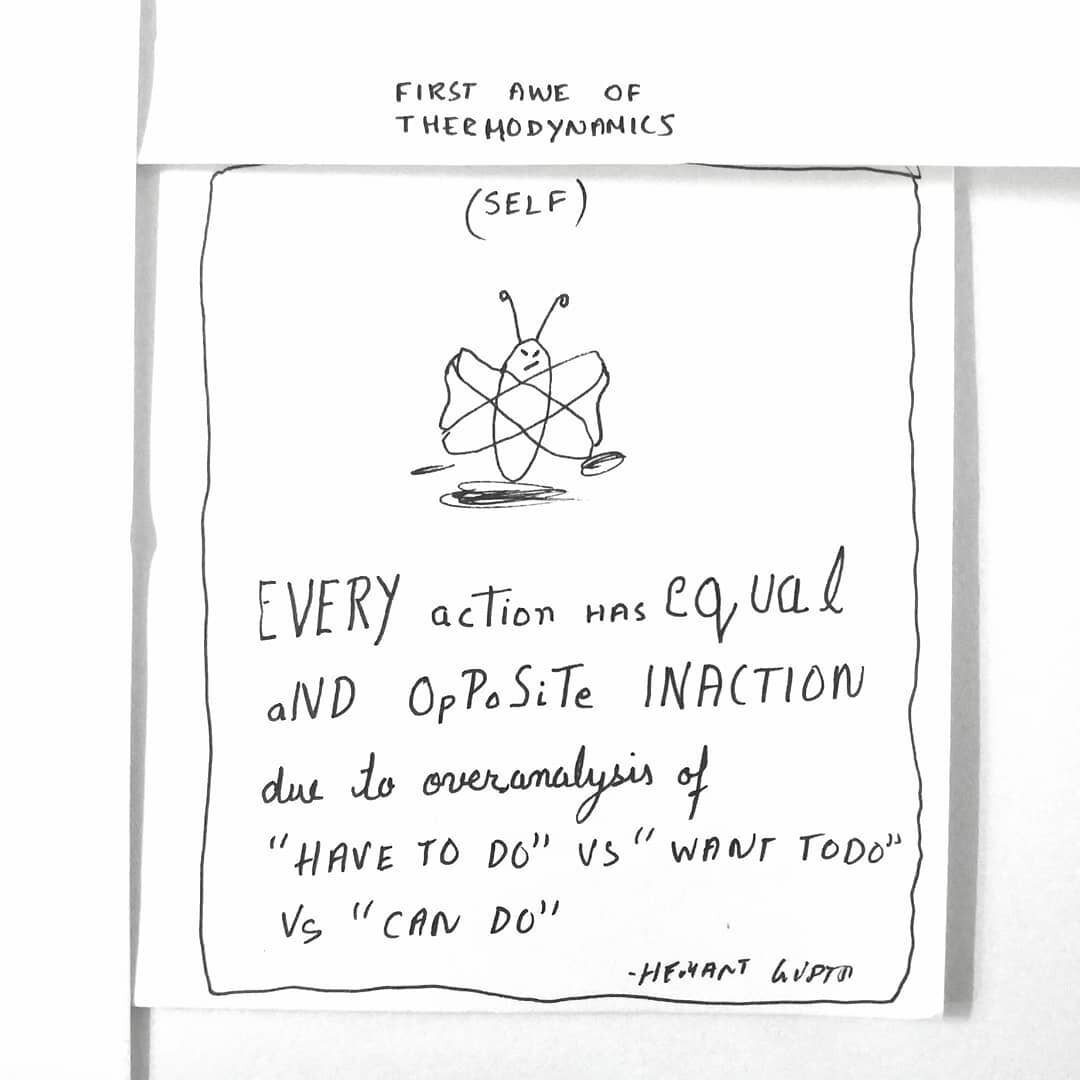 FIRST AWE OF
THERMODYNAMICS
(SELF)
EVERY action HAS equal
aND OpPoSiTe INACTION
due to overanalysis of
"HAVE TO DO" VS "WANT TODO"
VS "CAN DO"
-HEMANT GUPTA